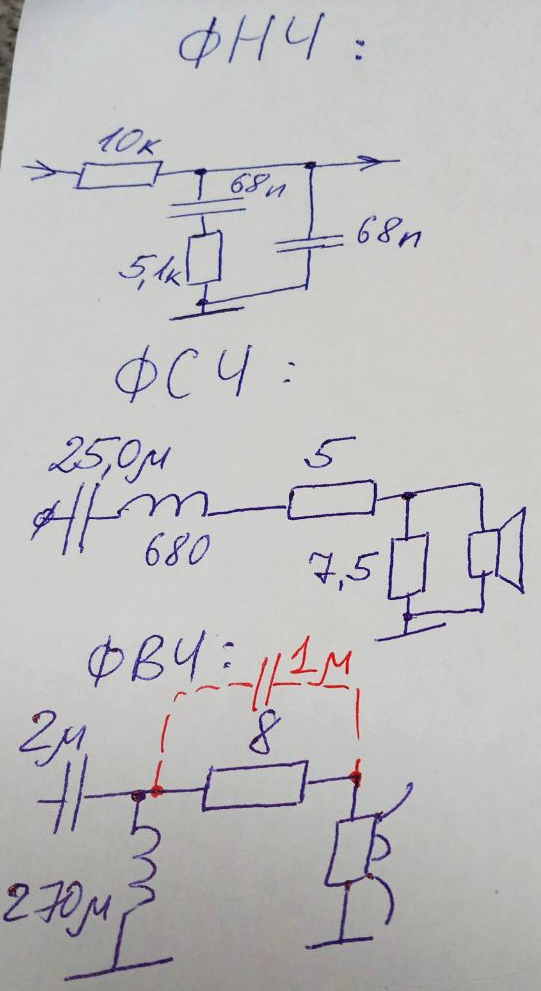 ФНЧ:
10к
68п
68п
5,1к
ФСЧ:
25,0м
5
680
7,5
ФВЧ:
1м
2м
8
270м